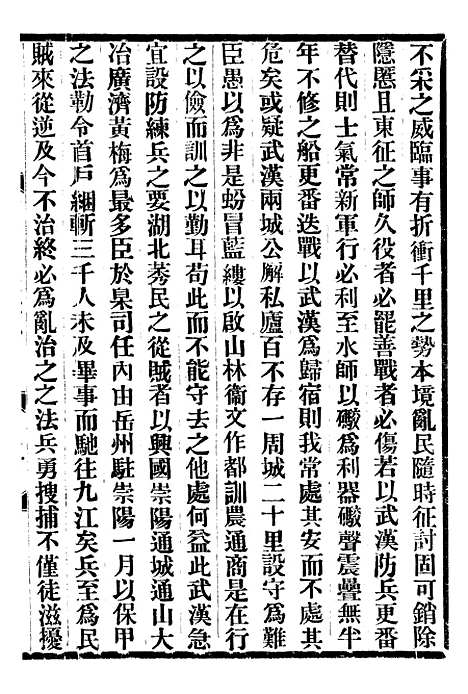 不采之威臨事有折衝千里之勢本境亂民隨時征討固可銷除
隱慝且東征之師久役者必罷善戰者必傷若以武漢防兵更番
替代則士氣常新軍行必利至水師以礮爲利器礮聲震疊無半
年不修之船更番迭戰以武漢爲歸宿則我常處其安而不處其
危矣或疑武漢兩城公廨私廬百不存一周城二十里設守爲難
臣愚以爲非是蚡冒藍縷以啟山林衞文作都訓農通商是在行
之以儉而訓之以勤耳苟此而不能守去之他處何益此武漢急
宜設防練兵之要湖北莠民之從賊者以興國崇陽通城通山大
冶廣濟黃梅爲最多臣於臬司任內由岳州駐崇陽一月以保甲
之法勒令首戶綑斬三千人未及畢事而馳往九江矣兵至爲民
賊來從逆及今不治終必爲亂治之之法兵勇搜捕不僅徒滋擾